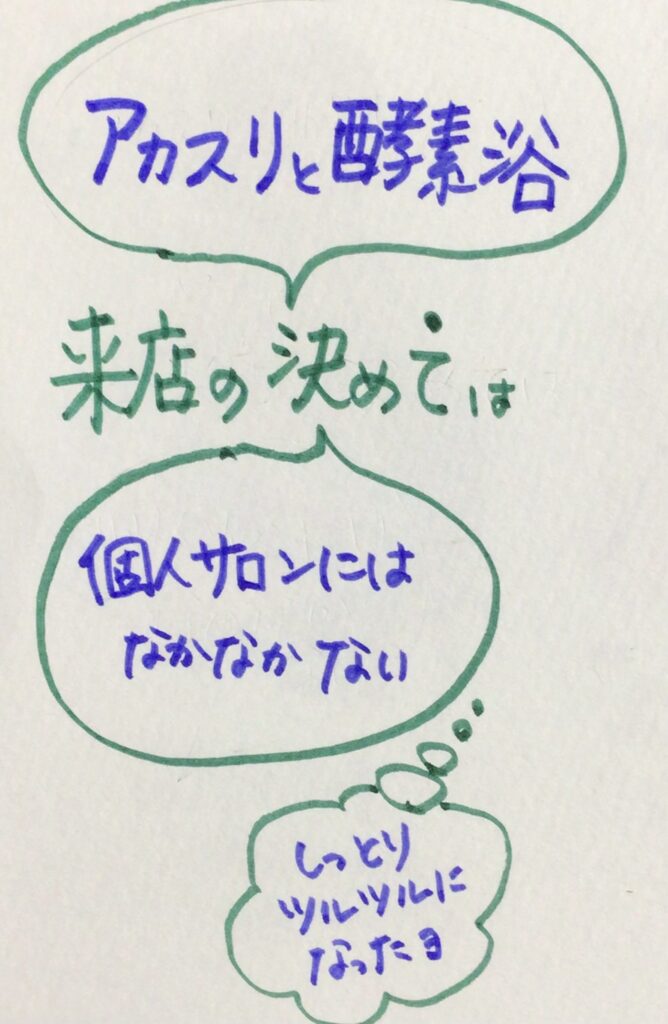 アカスリと酵素浴
来店の決めては
個人サロンには
なかなかない
しっとり
ツルツルに
なったヨ